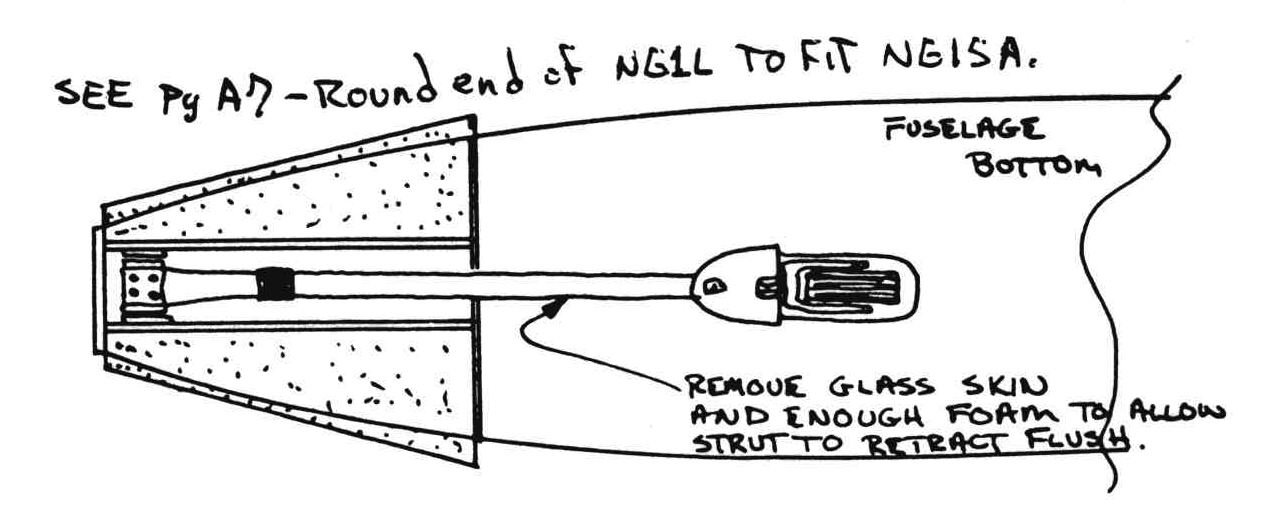 SEE Pg A7 - Round end of NG1L TO FIT NG15A.
FUSELAGE
BOTTOM
REMOVE GLASS SKIN
AND ENOUGH FOAM TO ALLOW
STRUT TO RETRACT FLUSH.